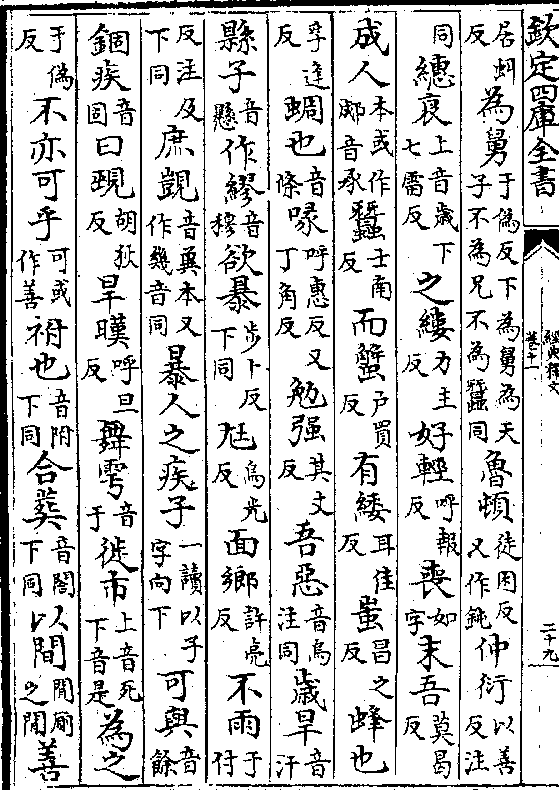 欽定四庫全書
經典釋文
卷十一
二十九
居蚓反為舅于偽反下為舅為天子不為兄不為蠶同魯頓徒困反又作鈍仲衍以善反注
同繐衰上音歲下七雷反之縷力主反好輕呼報反喪如字末吾莫曷反
成人本或作郕音承蠶士南反而蟹戶買反有緌耳佳反蚩昌之反蜂也
孚逢反蜩也音條喙呼惠反又丁角反勉强其丈反吾惡音烏注同歲旱音汗
縣子音懸作繆音穆欲暴步卜反下同尫烏光反面鄉許亮反不雨于付
反注及下同庶覬音冀本又作幾音同暴人之疾子一讀以子字向下可與音餘
錮疾音固曰覡胡狄反旱暵呼旦反舞雩音于徙市上音死下音是為之
于偽反不亦可乎可或作善祔也音附下同合葬音閤下同以間間厠之間善